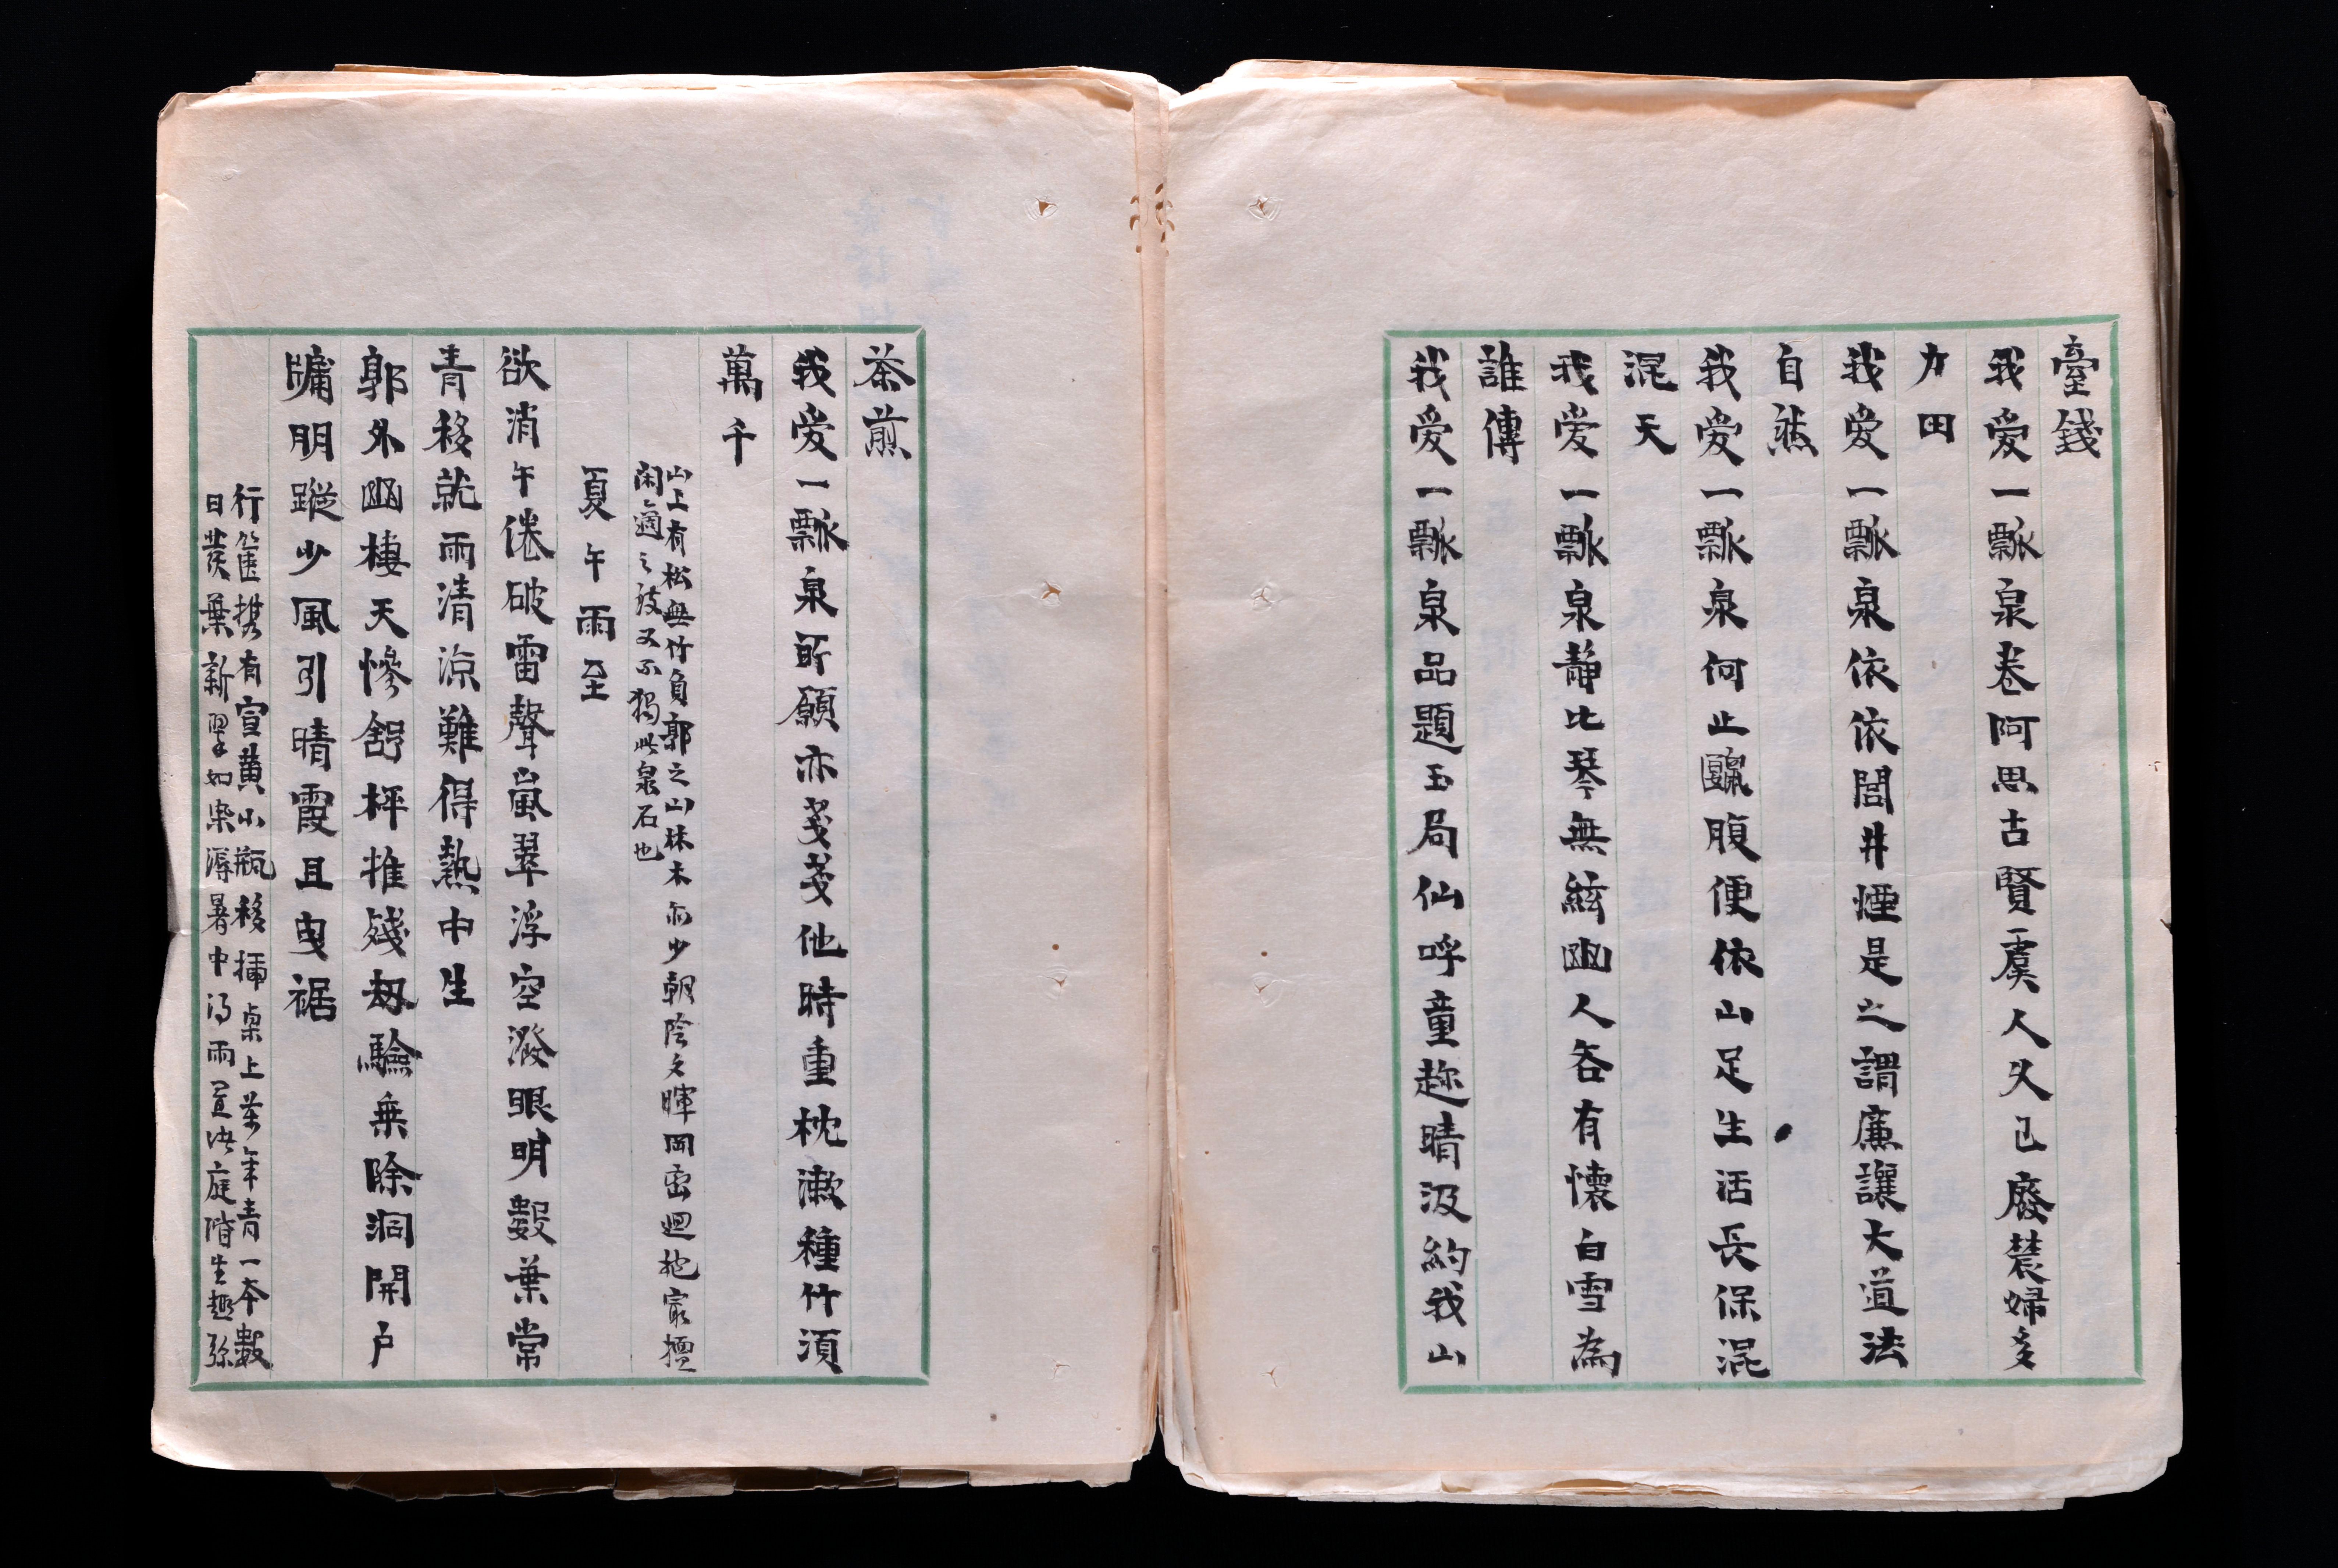 臺錢
我愛一瓢泉卷阿思古賢虞人久已廢農婦多
力田
我愛一瓢泉依依閭井煙是之謂廉讓大道法
自然
我愛一瓢泉何止鼴腹便依山足生活長保混
混天
我愛一瓢泉靜比琴無絃幽人各有懷白雪為
誰傳
我愛一瓢泉品題玉局仙呼童趂晴汲約我山
茶煎
我愛一瓢泉所願亦戔戔他時重枕漱種竹須
萬千
山上有松無竹負郭之山林木亦少朝陰夕暉岡巒迴抱最擅
閑適之致又不獨此泉石也
夏午雨至
欲消午倦破雷聲嵐翠浮空潑眼明數葉常
青移就雨清涼難得熱中生
郭外幽棲天慘舒枰推殘劫驗乘除洞開户
牖朋蹤少風引晴霞且曳裾
行篋攜有宣黃小瓶移插桌上萬年青一本數
日茇葉新翠如染溽暑中得雨置諸庭階生趣弥